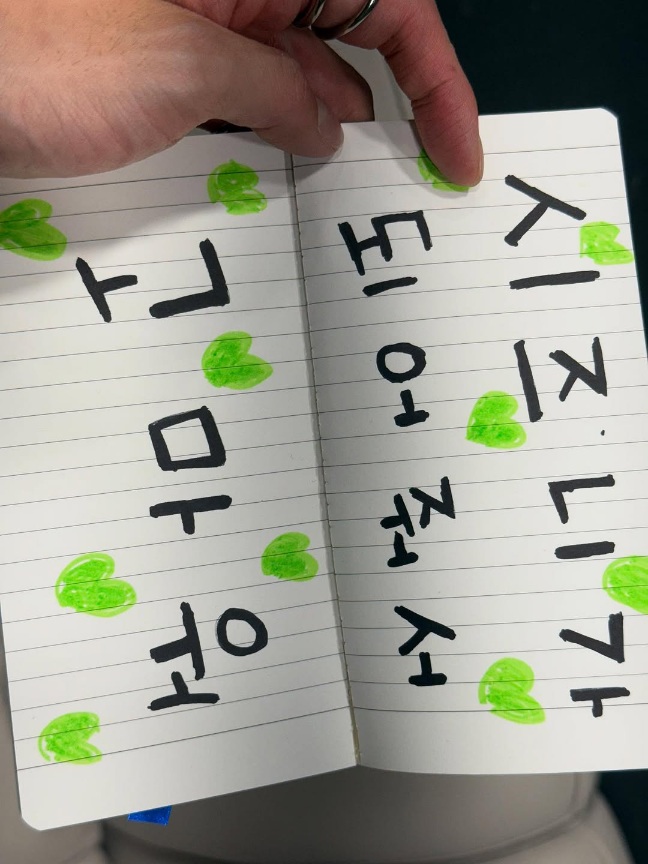 시즈니가
되어줘서
고마워